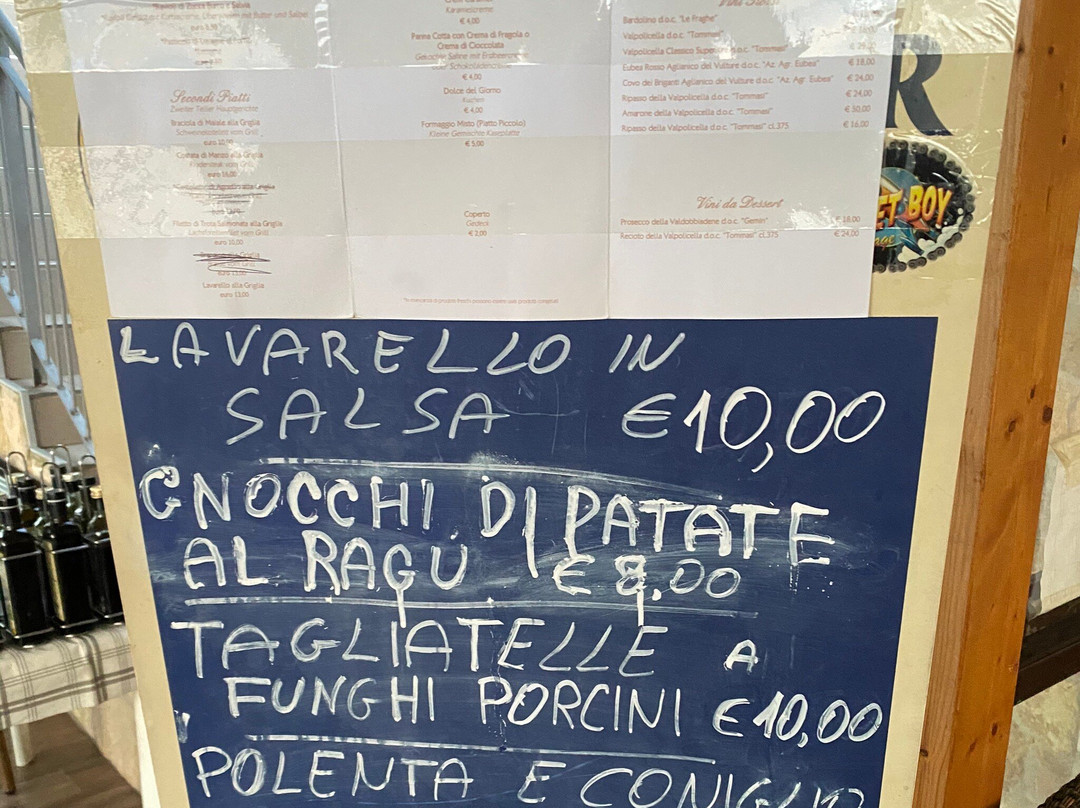 Secondi Piatti
Zweiter Teller Hauptgerichte
Braciola di Maiale alla Griglia
euro 10,00
Costata di Manzo alla Griglia
euro 16,00
Filetto di Trota Salmonata alla Griglia
Lachsforellenfilet vom Grill
euro 10,00
Lavarello alla Griglia
euro 13,00
Karamelcreme
€ 4,00
Panna Cotta con Crema di Fragola o
Crema di Cioccolata
€ 4,00
Dolce del Giorno
Kuchen
€ 4,00
Formaggio Misto (Piatto Piccolo)
Kleine Gemischte Käseplatte
€ 5,00
Coperto
Gedeck
€ 2,00
Bardolino d.o.c. "Le Fraghe"
Valpolicella d.o.c. "Tommasi"
Valpolicella Classico d.o.c. "Tommasi"
Eubea Rosso Aglianico del Vulture d.o.c. "Az. Agr. Eubea" € 18,00
Covo dei Briganti Aglianico del Vulture d.o.c. "Az. Agr. Eubea" € 24,00
Ripasso della Valpolicella d.o.c. "Tommasi" € 24,00
Amarone della Valpolicella d.o.c. "Tommasi" € 50,00
Ripasso della Valpolicella d.o.c. "Tommasi" cl.375 € 16,00
Vini da Dessert
Prosecco della Valdobbiadene d.o.c. "Gemin" € 18,00
Recioto della Valpolicella d.o.c. "Tommasi" cl.375 € 24,00
R
BOY
LAVARELLO IN
SALSA €10,00
GNOCCHI DI PATATE
AL RAGU € 8,00
TAGLIATELLE A
FUNGHI PORCINI €10,00
POLENTA E CONIGLIO